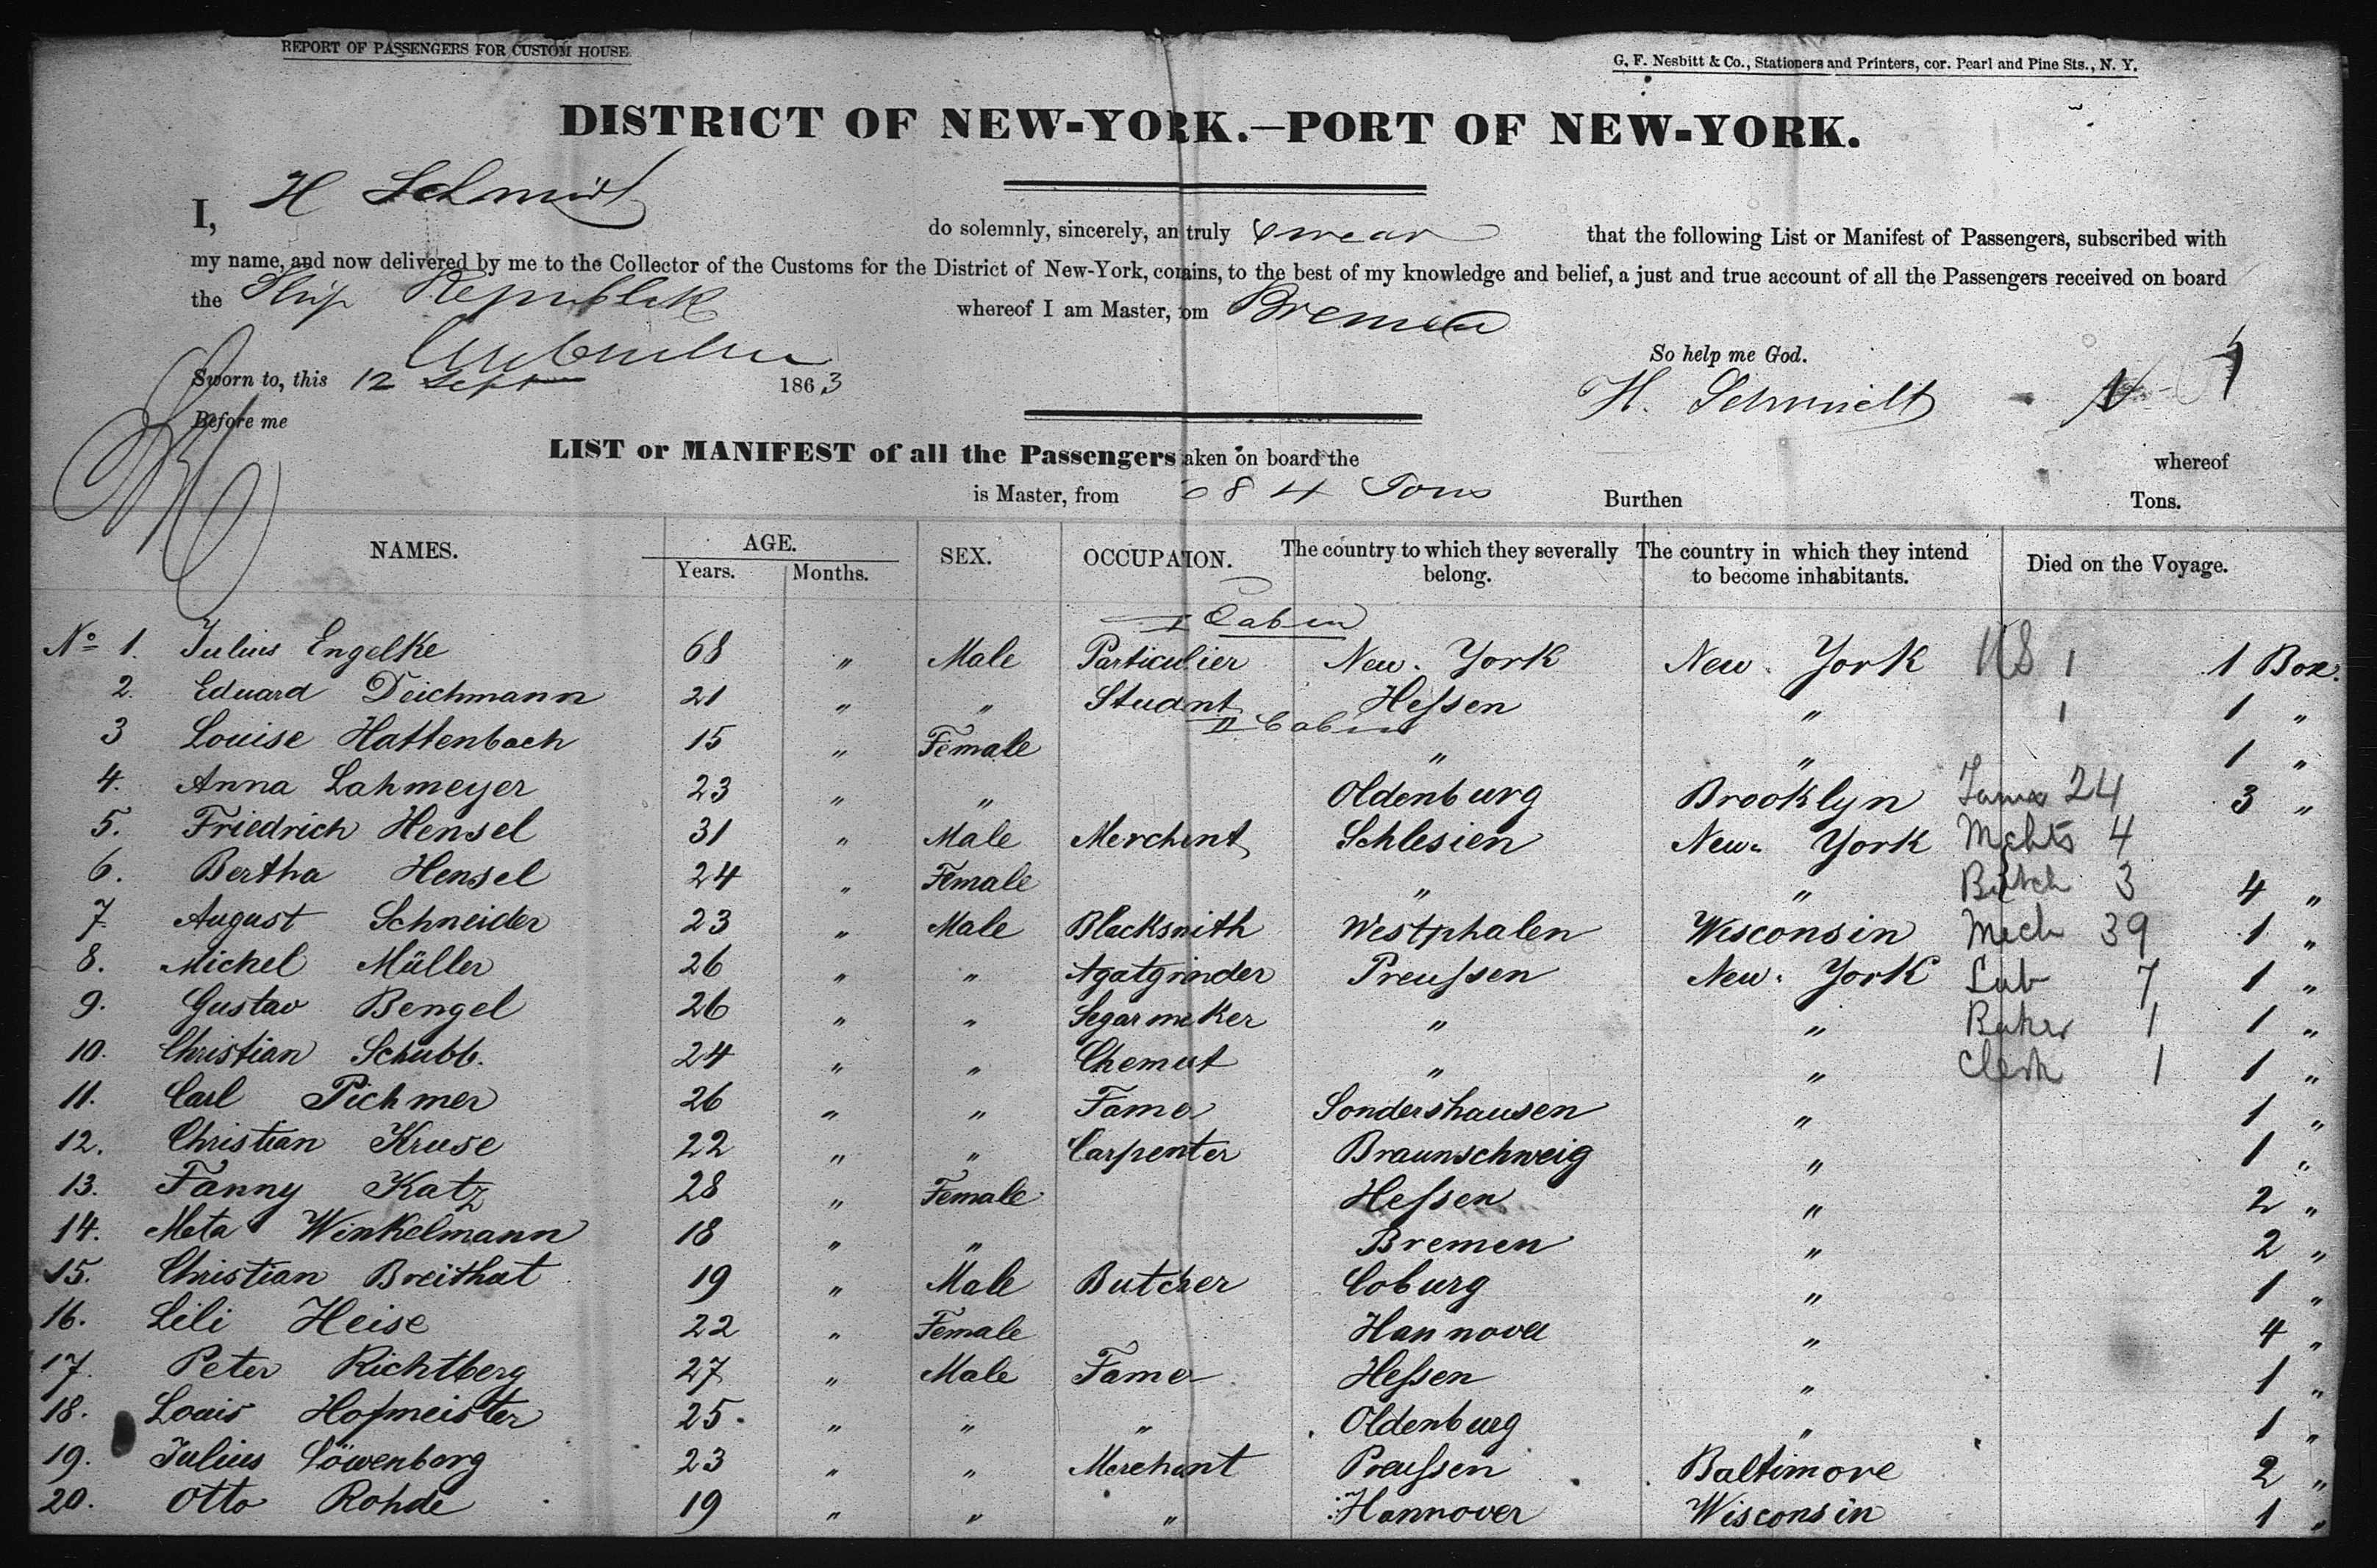 REPORT OF PASSENGERS FOR CUSTOM HOUSE
G. F. Nesbitt & Co., Stationers and Printers, cor. Pearl and Pine Sts., N. Y.
DISTRICT OF NEW-YORK.—PORT OF NEW-YORK.
I, H Schmidt do solemnly, sincerely, an truly swear that the following List or Manifest of Passengers, subscribed with
my name, and now delivered by me to the Collector of the Customs for the District of New-York, conains, to the best of my knowledge and belief, a just and true account of all the Passengers received on board
the Ship Republik whereof I am Master, om Bremen
So help me God.
Sworn to, this 12 Sept 1863
H. Schmidt
Before me
LIST or MANIFEST of all the Passengers aken on board the whereof
is Master, from 684 Tons Burthen Tons.
NAMES. AGE. Years. Months. SEX. OCCUPAION. The country to which they severally belong. The country in which they intend to become inhabitants. Died on the Voyage.
I Cabin
No 1. Julius Engelke 68 " Male Particulier New. York New. York US 1 1 Box.
2. Eduard Deichmann 21 " " Studnt Hessen " 1 1 "
II Cabin
3 Louise Hattenbach 15 " Female " " 1 "
4. Anna Lahmeyer 23 " " Oldenburg Brooklyn 24 3 "
5. Friedrich Hensel 31 " Male Merchant Schlesien New. York Mchts 4
6. Bertha Hensel 24 " Female " " Butch 3 4 "
7. August Schneider 23 " Male Blacksmith Westphalen Wisconsin Mech 39 1 "
8. Michel Müller 26 " " Agatgrinder Preussen New. York Lab 7 1 "
9. Gustav Bengel 26 " " Segarmaker " " Baker 1 1 "
10. Christian Schubb. 24 " " Chemist " " Clerk 1 1 "
11. Carl Pichmer 26 " " Famer Sondershausen " 1 "
12. Christian Kruse 22 " " Carpenter Braunschweig " 1 "
13. Fanny Katz 28 " Female Hessen " 2 "
14. Meta Winkelmann 18 " " Bremen " 2 "
15. Christian Breithat 19 " Male Butcher Coburg " 1 "
16. Lili Heise 22 " Female Hannover " 4 "
17. Peter Richtberg 27 " Male Famer Hessen " 1 "
18. Louis Hofmeister 25. " " " Oldenburg " 1 "
19. Julius Löwenberg 23 " " Merchant Preussen Baltimore 2 "
20. Otto Rohde 19 " " " Hannover Wisconsin 1 "